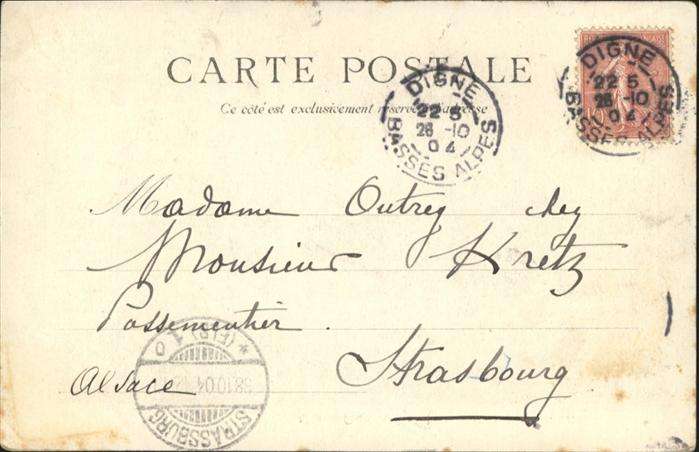 CARTE POSTALE
Ce côté est exclusivement réservé à l'adresse
DIGNE
22 5
26 -10
04
BASSES ALPES
DIGNE
22 5
26 -10
04
BASSES-ALPES
Madame Outrey chez
Monsieur Kretz
Passementier
Alsace Strasbourg
* (Els) 1 O
28.10.04
STRASSBURG